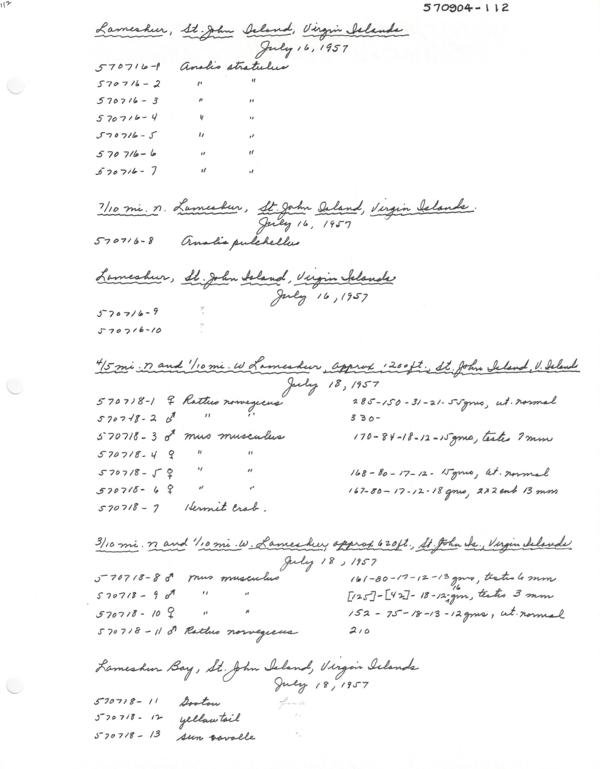 112
570904-112
Lameshur, St. John Island, Virgin Islands
July 16, 1957
570716-1 Anolis stratulus
570716-2 " "
570716-3 " "
570716-4 " "
570716-5 " "
570716-6 " "
570716-7 " "
7/10 mi. N. Lameshur, St. John Island, Virgin Islands.
July 16, 1957
570716-8 Anolis pulchellus
Lameshur, St. John Island, Virgin Islands
July 16, 1957
570716-9 ?
570716-10
4/5 mi. N and 1/10 mi. W Lameshur, approx 1200 ft., St. John Island, V. Islands
July 18, 1957
570718-1 ♀ Rattus norvegicus 285-150-31-21-55gms, ut. normal
570718-2 ♂ " " 330-
570718-3 ♂ Mus musculus 170-84-18-12-15gms, testes 7mm
570718-4 ♀ " "
570718-5 ♀ " " 168-80-17-12-15gms, ut. normal
570718-6 ♀ " " 167-80-17-12-18 gms, 2x2 emb 13 mm
570718-7 Hermit Crab.
3/10 mi. N and 1/10 mi. W. Lameshur, approx 620 ft., St John Is., Virgin Islands
July 18, 1957
570718-8 ♂ Mus musculus 161-80-17-12-13 gms, testes 6 mm
570718-9 ♂ " " [125]-[42]-18-12-16 gm, testes 3 mm
570718-10 ♀ " " 152-75-18-13-12gms, ut. normal
570718-11 ♂ Rattus norvegicus 210
Lameshur Bay, St. John Island, Virgin Islands
July 18, 1957
570718-11
570718-12 yellowtail
570718-13